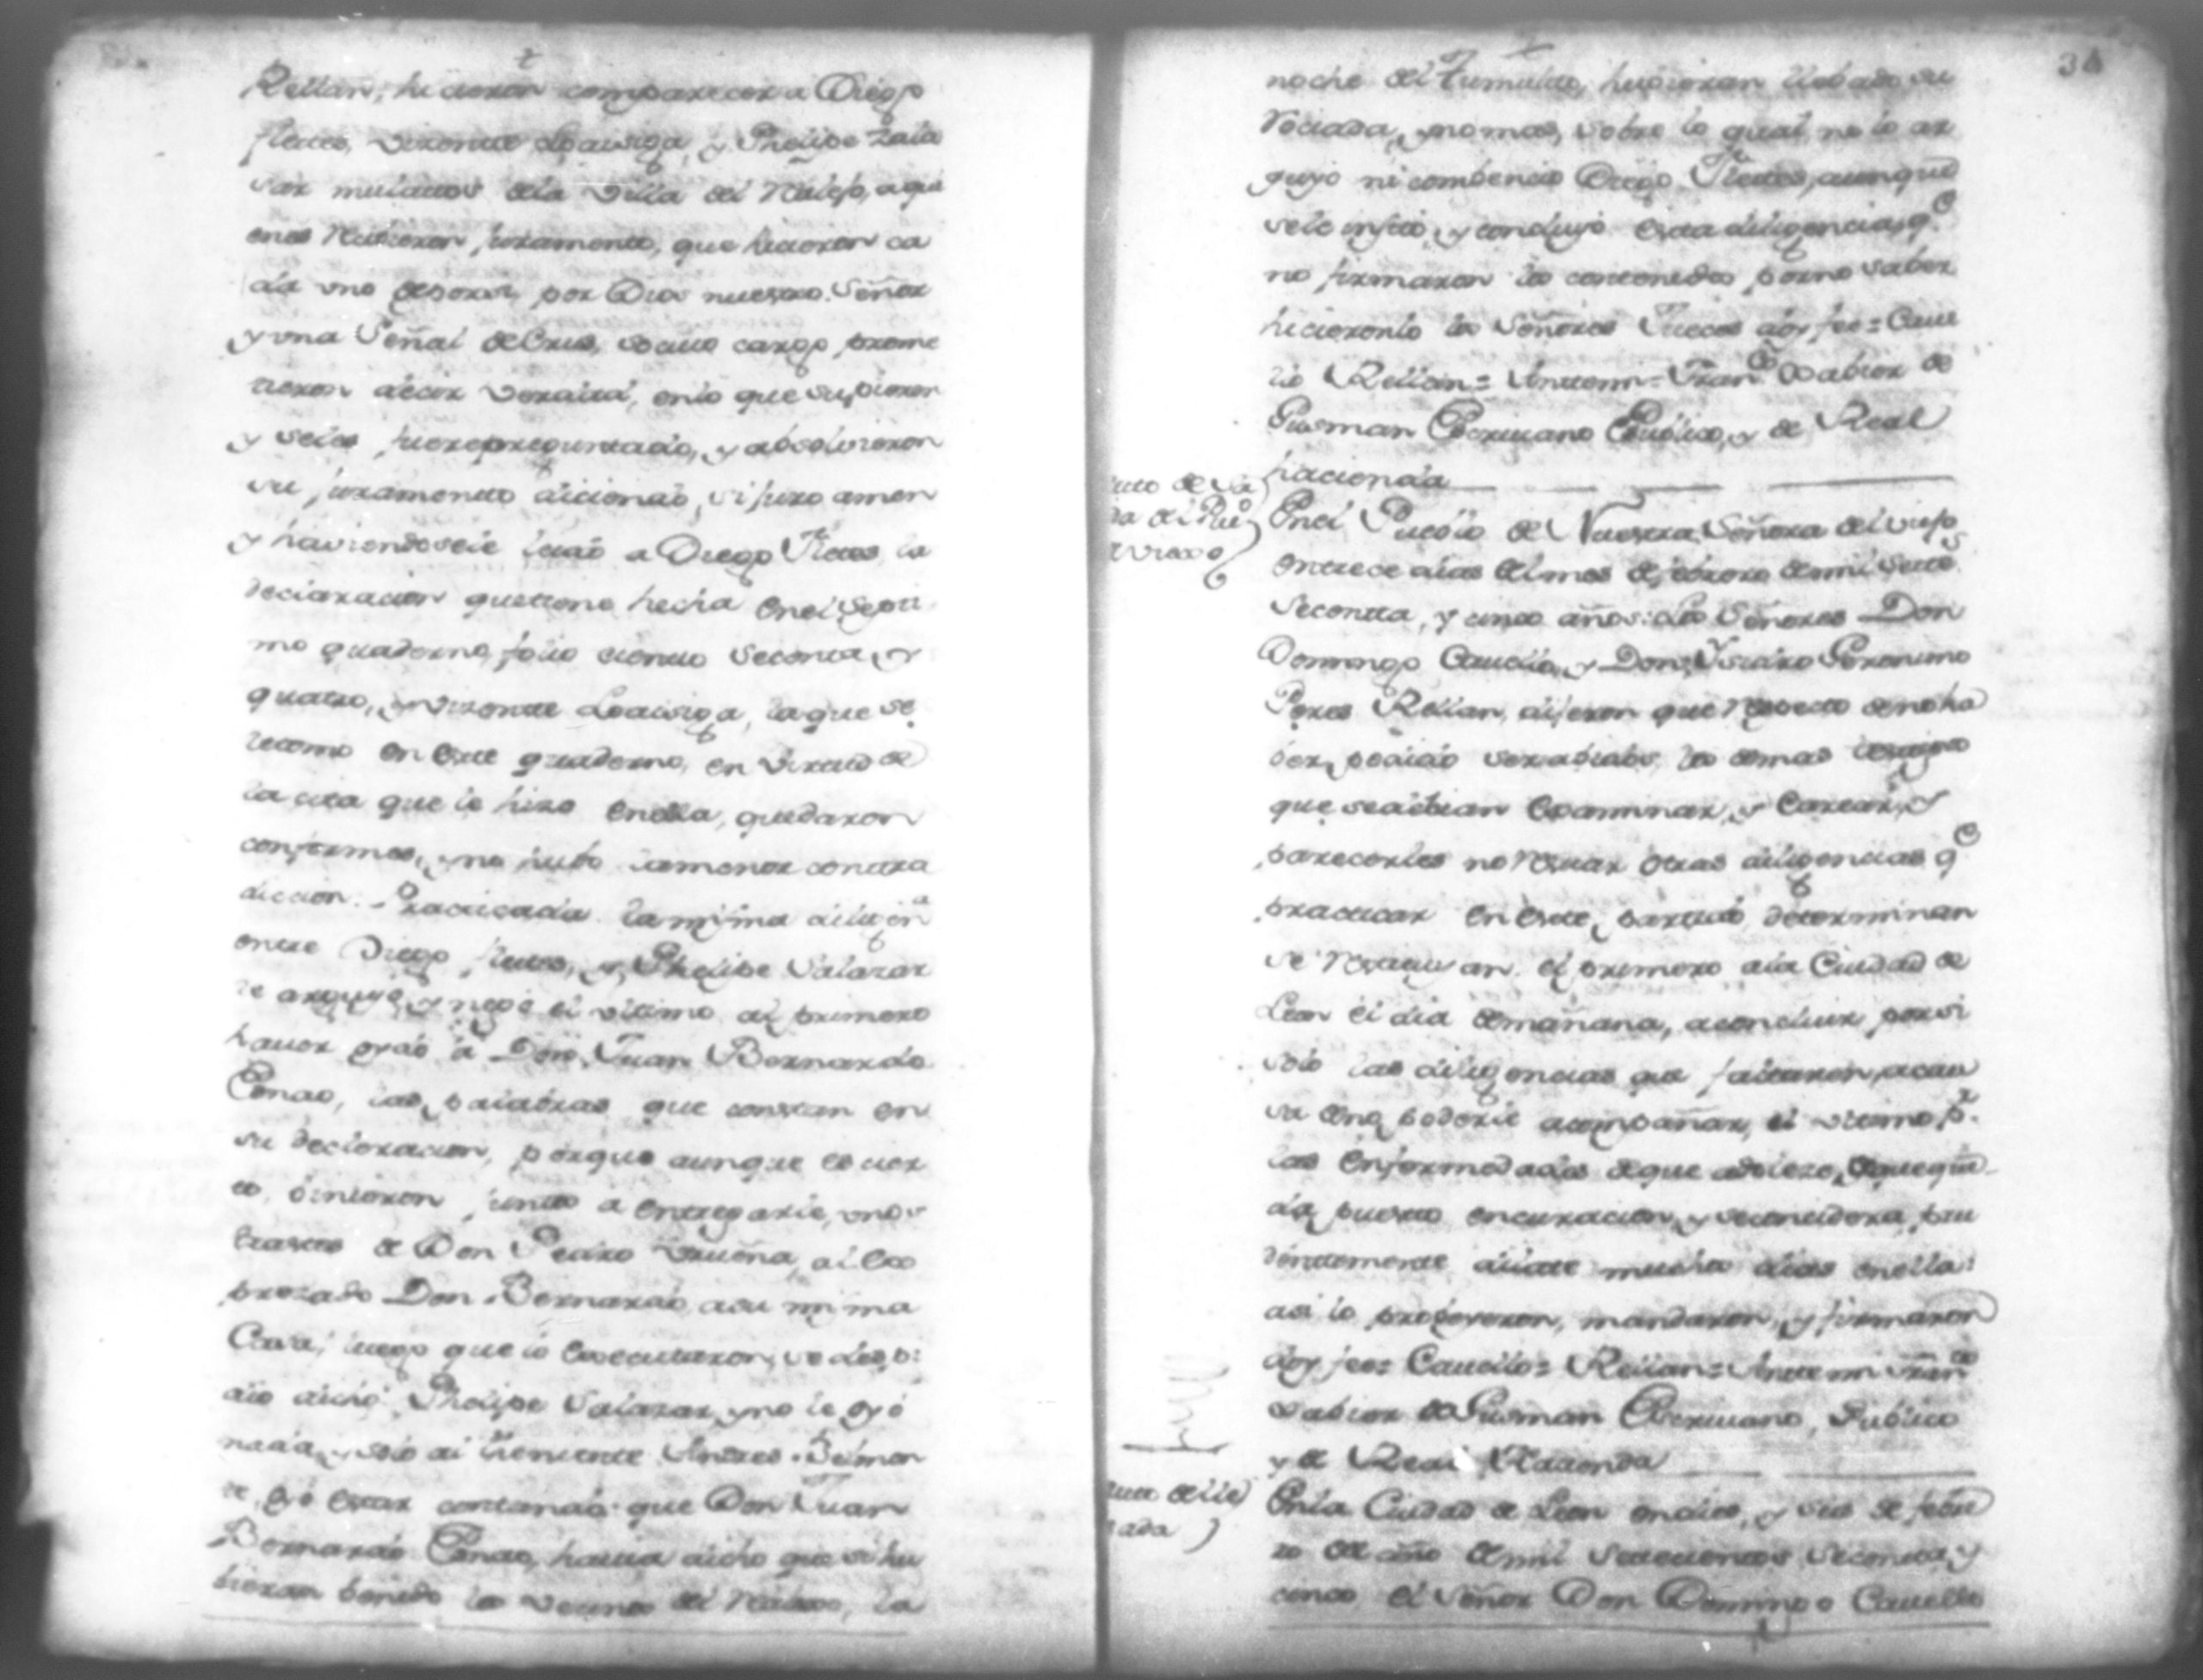 Rellan, hicieron comparecer a Diego
fletes, Vizente Loaisiga, y Phelipe Zala
sar mulatos dela Villa del Realejo, a qui
enes Recivieron juramento, que hicieron ca
da uno de por si, por Dios nuestro Señor
y una Señal de Cruz, vajo cuio cargo prome
tieron decir verdad, en lo que supieren
y seles fuere preguntado, y absolvieron
su juramento diciendo, si juro amen
y haviendosele leido a Diego Fletes, la
declaracion que tiene hecha en el Septi
mo quaderno, folio ciento Secenta, y
quatro, y a Vizente Loaisiga, la que se
le tomo en este quaderno, en virtud de
la cita que le hizo en ella, quedaron
conformes, y no hubo la menor contra
diccion. Practicada la misma diligen.a
entre Diego fletes, y Phelipe Salazar
le arguyó, y negó el ultimo al primero
haver oydo a Don Juan Bernardo
Conao, las palabras que constan en
su declaracion, porque aunque es cier
to, vinieron junto a entregarle, unos
trastes de Don Pedro Urueña, al Ex
prezado Don Bernardo, a su misma
Casa, luego que lo executaron, se despi
dio dicho Phelipe Salazar, y no le oyó
nada, y solo al theniente Andres Belmon
te, oyó estar contando que Don Juan
Bernardo Conao, havia dicho que si hu
bieran benido los vecinos del Realexo, la
34
noche del Tumulto, hubieran llebado su
Rociada, y no mas, sobre lo qual, no lo ar
guyo ni combencio Diego Fletes, aunque
se le insto, y concluyó esta diligencia, q.e
no firmaron los contenidos, por no saber
hicieronlo los Señores Jueces doy fee = Cave
llo = Rellan = Antte mi = Fran.co Xabier de
Gusman Escrivano Publico, y de Real
hacienda
auto de Sa
da del Pue
Viexo
En el Pueblo de Nuestra Señora del viejo
en trece dias del mes de febrero de mil Sett.s
Secentta, y cinco años: Los Señores Don
Domingo Cavello, y Don Ysidro Geronimo
Peres Rellan, dijeron que Respecto de no ha
ber podido ser abidos los demas testigos
que se debian Examinar, y Carear, y
parecerles no Restar otras diligencias q.e
practicar en este partido, determinan
se Restituyan, el primero a la Ciudad de
Leon el dia de mañana, a concluir por si
solo las diligencias que faltaren, a cau
sa de no poderle acompañar el ultimo p.r
las enfermedades de que adolece, de que que
da puesto en curacion, y se concidera, pru
dentemente dilate muchos dias en ella:
asi lo probeyeron, mandaron, y firmaron
doy fee = Cavello = Rellan = Antte mi Fran.co
Xabier de Gusman Escrivano, Publico
y de Real Hacienda
auto de lle
gada
En la Ciudad de Leon en dies, y seis de febre
ro de año de mil Setecientos, Secenta, y
cinco el Señor Don Domingo Cavello